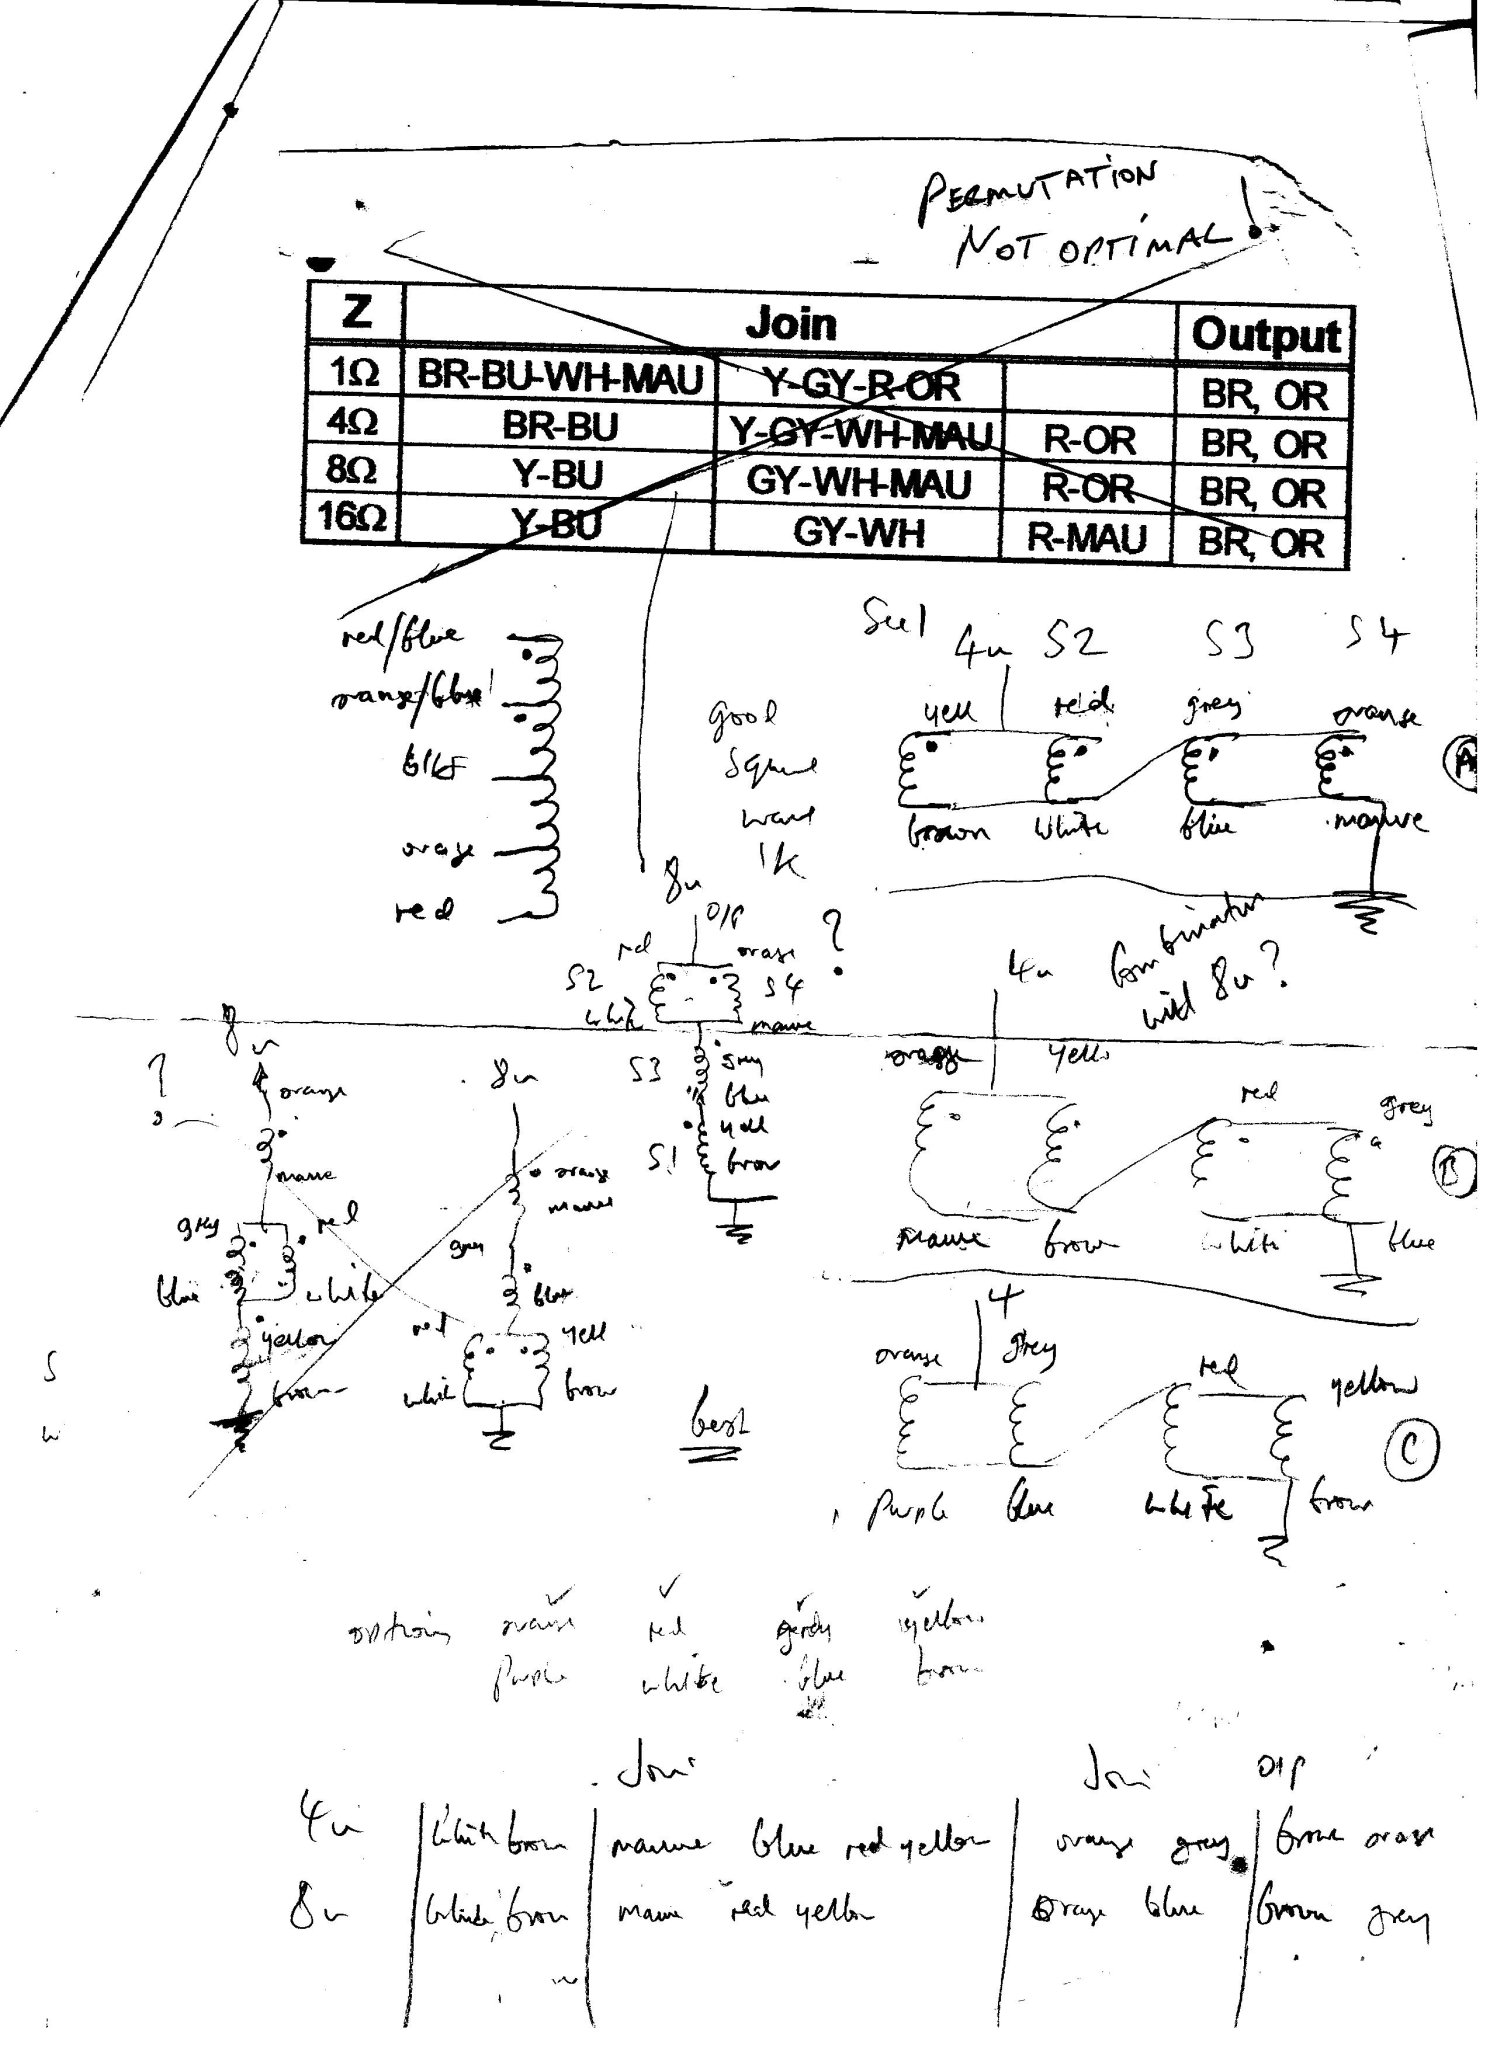 PERMUTATION
NOT OPTIMAL !
Z Join Output
1Ω BR-BU-WH-MAU Y-GY-R-OR BR, OR
4Ω BR-BU Y-GY-WH-MAU R-OR BR, OR
8Ω Y-BU GY-WH-MAU R-OR BR, OR
16Ω Y-BU GY-WH R-MAU BR, OR
red/blue
orange/blue
blk
orange
red
good
square
wave
1K
4Ω S2 S3 S4
yell red grey orange
brown white blue mauve
A
8Ω
O/P
red orange ?
S2 S4
white mauve
S3 grey
blue
yell
S1 brown
Combination
with 8Ω?
4Ω
orange yello
red grey
mauve brown white blue
B
?
8Ω
orange
mauve
grey red
blue white
yellow
brown
8Ω
orange
mauve
grey
blue
red yell
white brown
best
4
orange grey red yellow
purple blue white brown
C
options orange red grey yellow
purple white blue brown
Join Join O/P
4Ω white brown mauve blue red yellow orange grey brown orange
8Ω white brown mauve red yellow orange blue brown grey